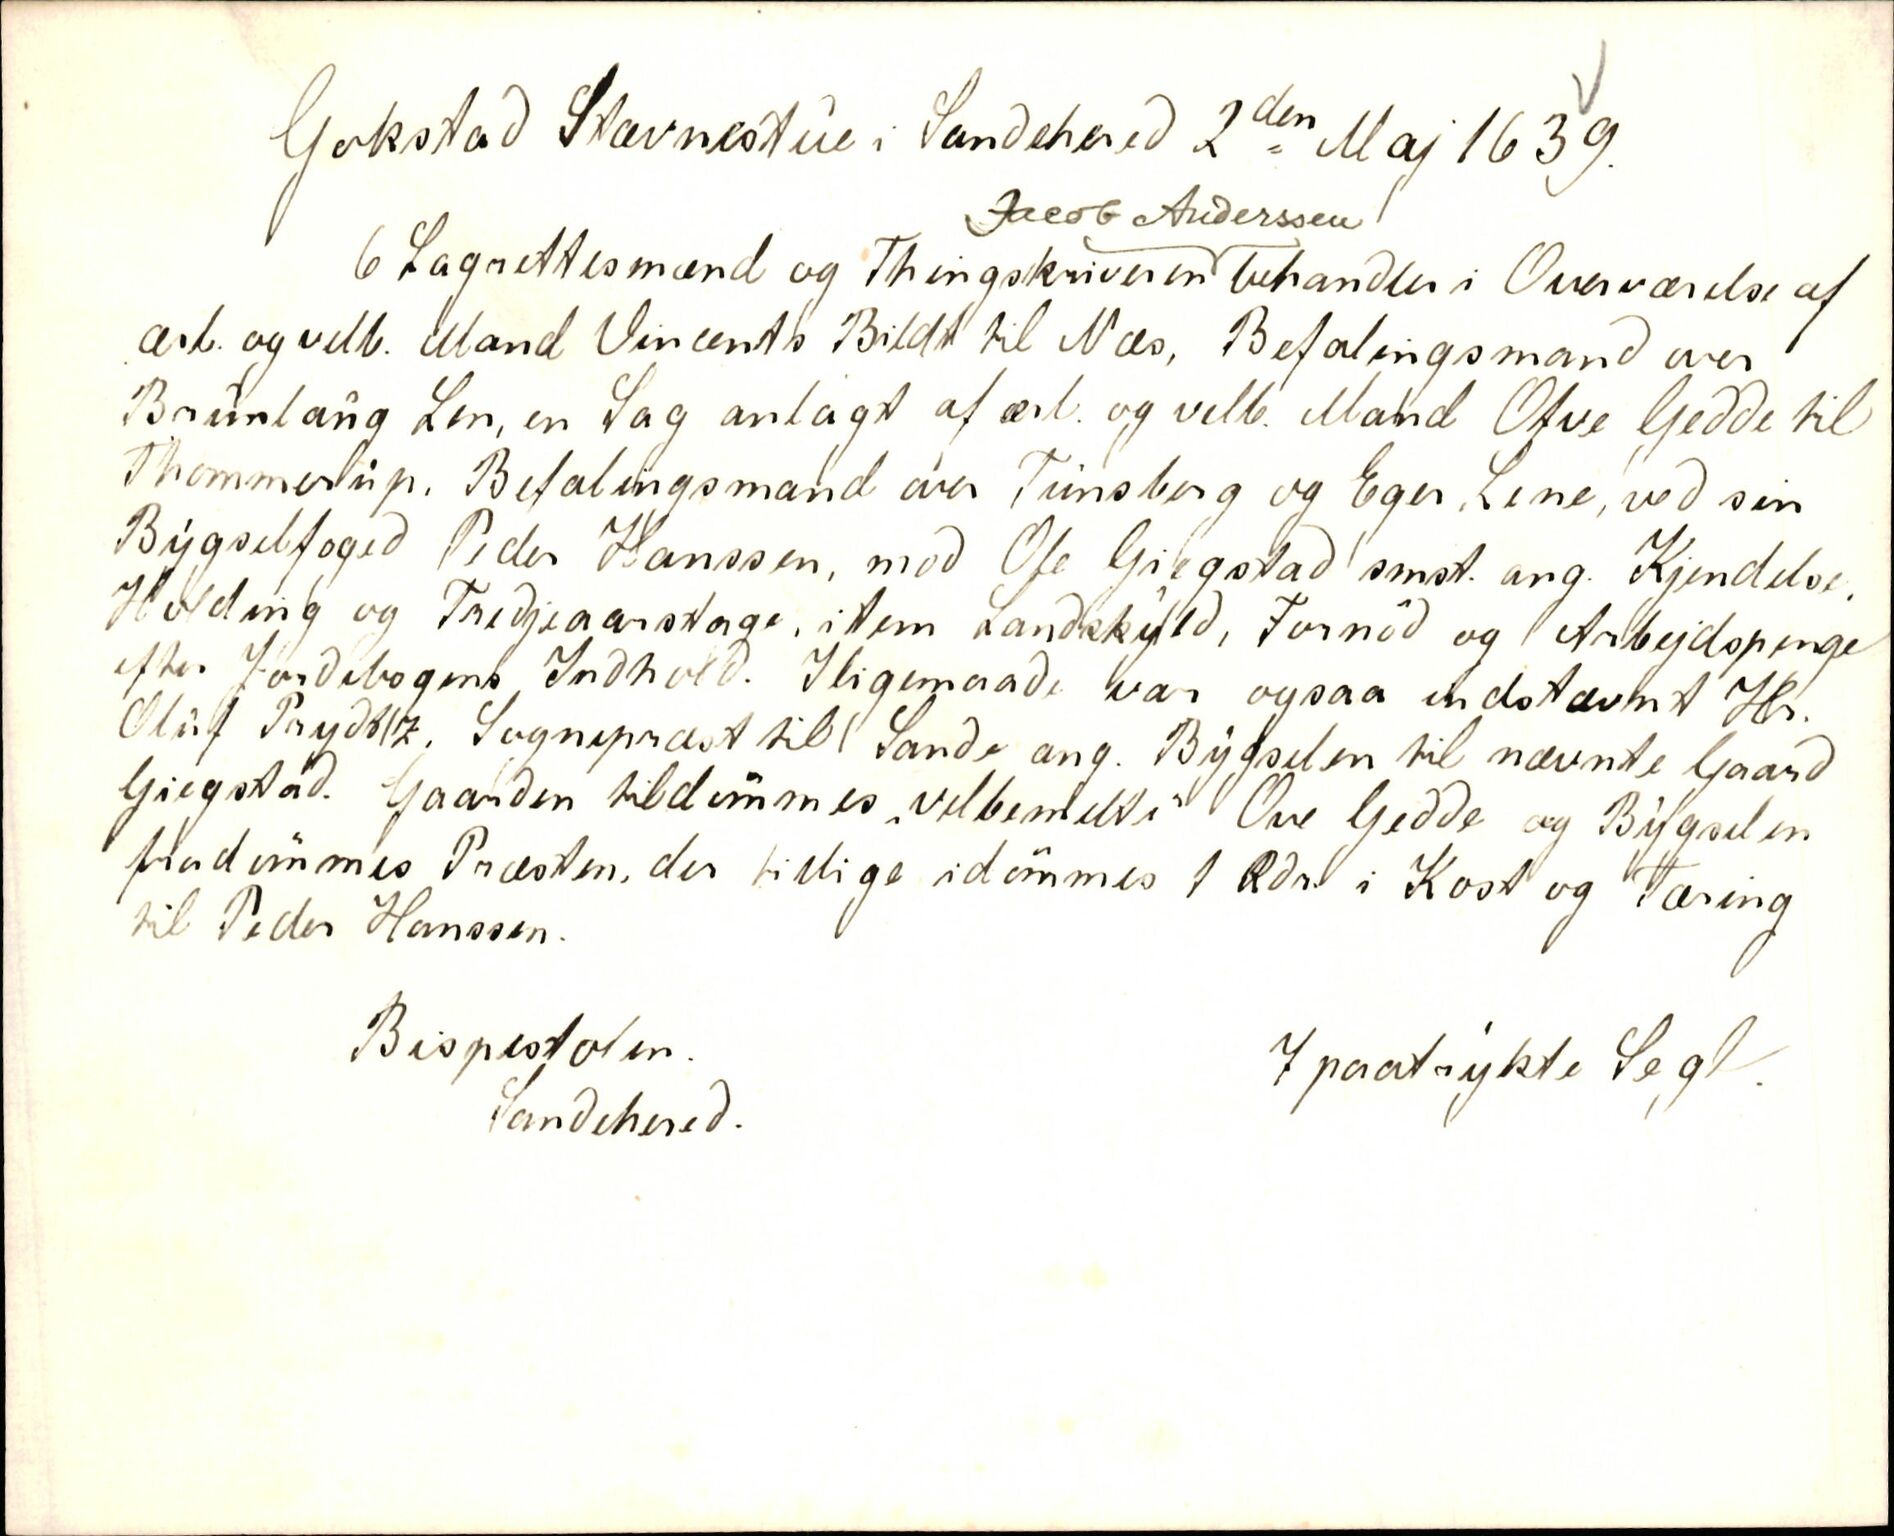 Gokstad Stævnestue i Sandehered 2den Maj 1639.
Jacob Anderssen
6 Lagrettesmænd og Thingskriveren behandler i Overværelse af
ærl. og velb. Mand Vincents Bildt til Næs, Befalingsmand over
Brunlaug Len, en Sag anlagt af ærl. og velb. Mand Ofve Gedde til
Thommerup, Befalingsmand over Tunsberg og Eger Lene, ved sin
Bygselfoged Peder Hanssen, mod Ole Giegstad smst. ang. Kjendelse,
Holding og Tredjeaarstage, item Landskyld, Fornød og Arbejdspenge
efter Jordebogens Indhold. Iligemaade var ogsaa indstævnt Hr.
Oluf Prydtz, Sognepræst til Sande ang. Bygselen til nævnte Gaard
Giegstad. Gaarden tildømmes „velbemelte“ Ove Gedde og Bygselen
fradømmes Præsten, der tillige idømmes 1 Rdr. i Kost og Tæring
til Peder Hanssen.
Bispestolen.
7 paatrykte Segl.
Sandehered.